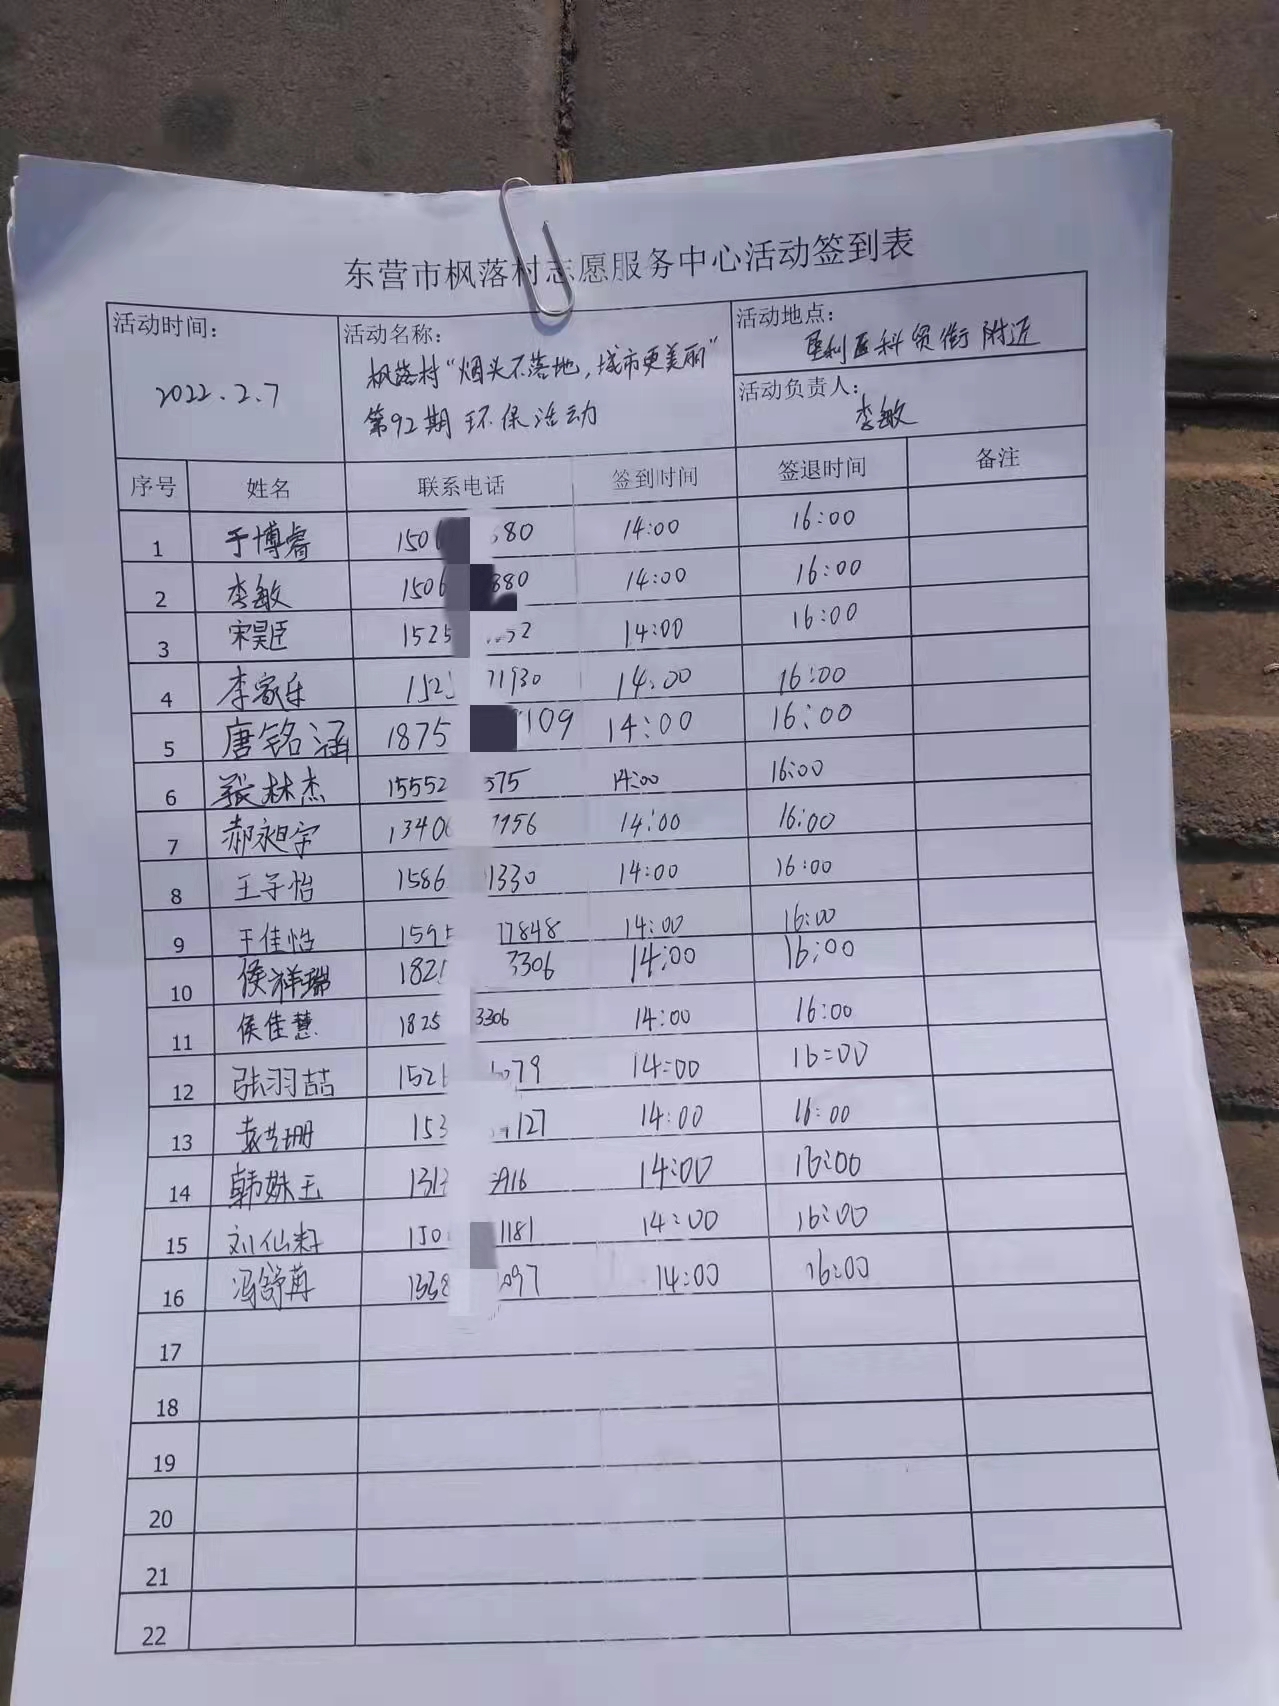 东营市枫落村志愿服务中心活动签到表
活动时间：
2022.2.7
活动名称：
枫落村“烟头不落地，城市更美丽”
第92期 环保活动
活动地点：
垦利区科贸街附近
活动负责人：
李敏
序号 姓名 联系电话 签到时间 签退时间 备注
1 于博睿 150 80 14:00 16:00
2 李敏 1506 880 14:00 16:00
3 宋昊臣 1525 52 14:00 16:00
4 李家乐 152 71930 14:00 16:00
5 唐铭涵 1875 109 14:00 16:00
6 张林杰 15552 375 14:00 16:00
7 郝昶宇 1340 7956 14:00 16:00
8 王子怡 1586 1330 14:00 16:00
9 王佳怡 1595 17848 14:00 16:00
10 侯祥瑞 1825 3306 14:00 16:00
11 侯佳慧 1825 3306 14:00 16:00
12 张羽喆 1526 079 14:00 16:00
13 袁艺珊 153 127 14:00 16:00
14 韩姝玉 131 916 14:00 16:00
15 刘仙 150 1181 14:00 16:00
16 冯舒苒 1338 097 14:00 16:00
17
18
19
20
21
22